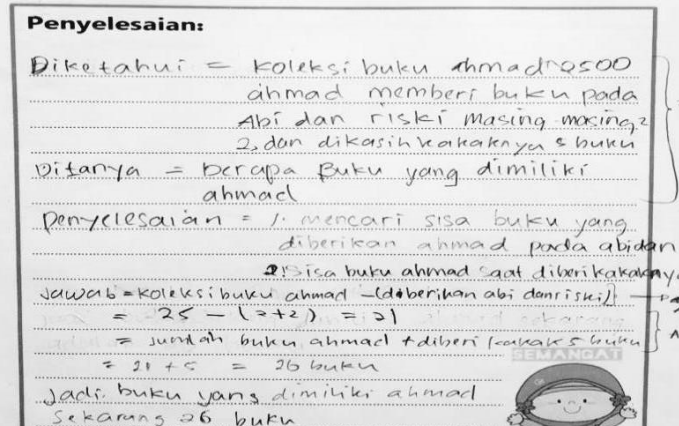 Penyelesaian:
Diketahui = Koleksi buku Ahmad
ahmad memberi buku pada
Abi dan riski masing-masing 2
2, dan dikasih kakaknya 5 buku
Ditanya = berapa Buku yang dimiliki
ahmad
penyelesaian = 1. mencari sisa buku yang
diberikan ahmad pada abi dan
2. Sisa buku ahmad saat diberi kakaknya
Jawab = Koleksi buku ahmad - (diberikan abi dan riski)
= 25 - (2+2) = 21
= Jumlah buku ahmad + diberi kakak 5 buku
= 21 + 5 = 26 buku
SEMANGAT
Jadi buku yang dimiliki ahmad
Sekarang 26 buku